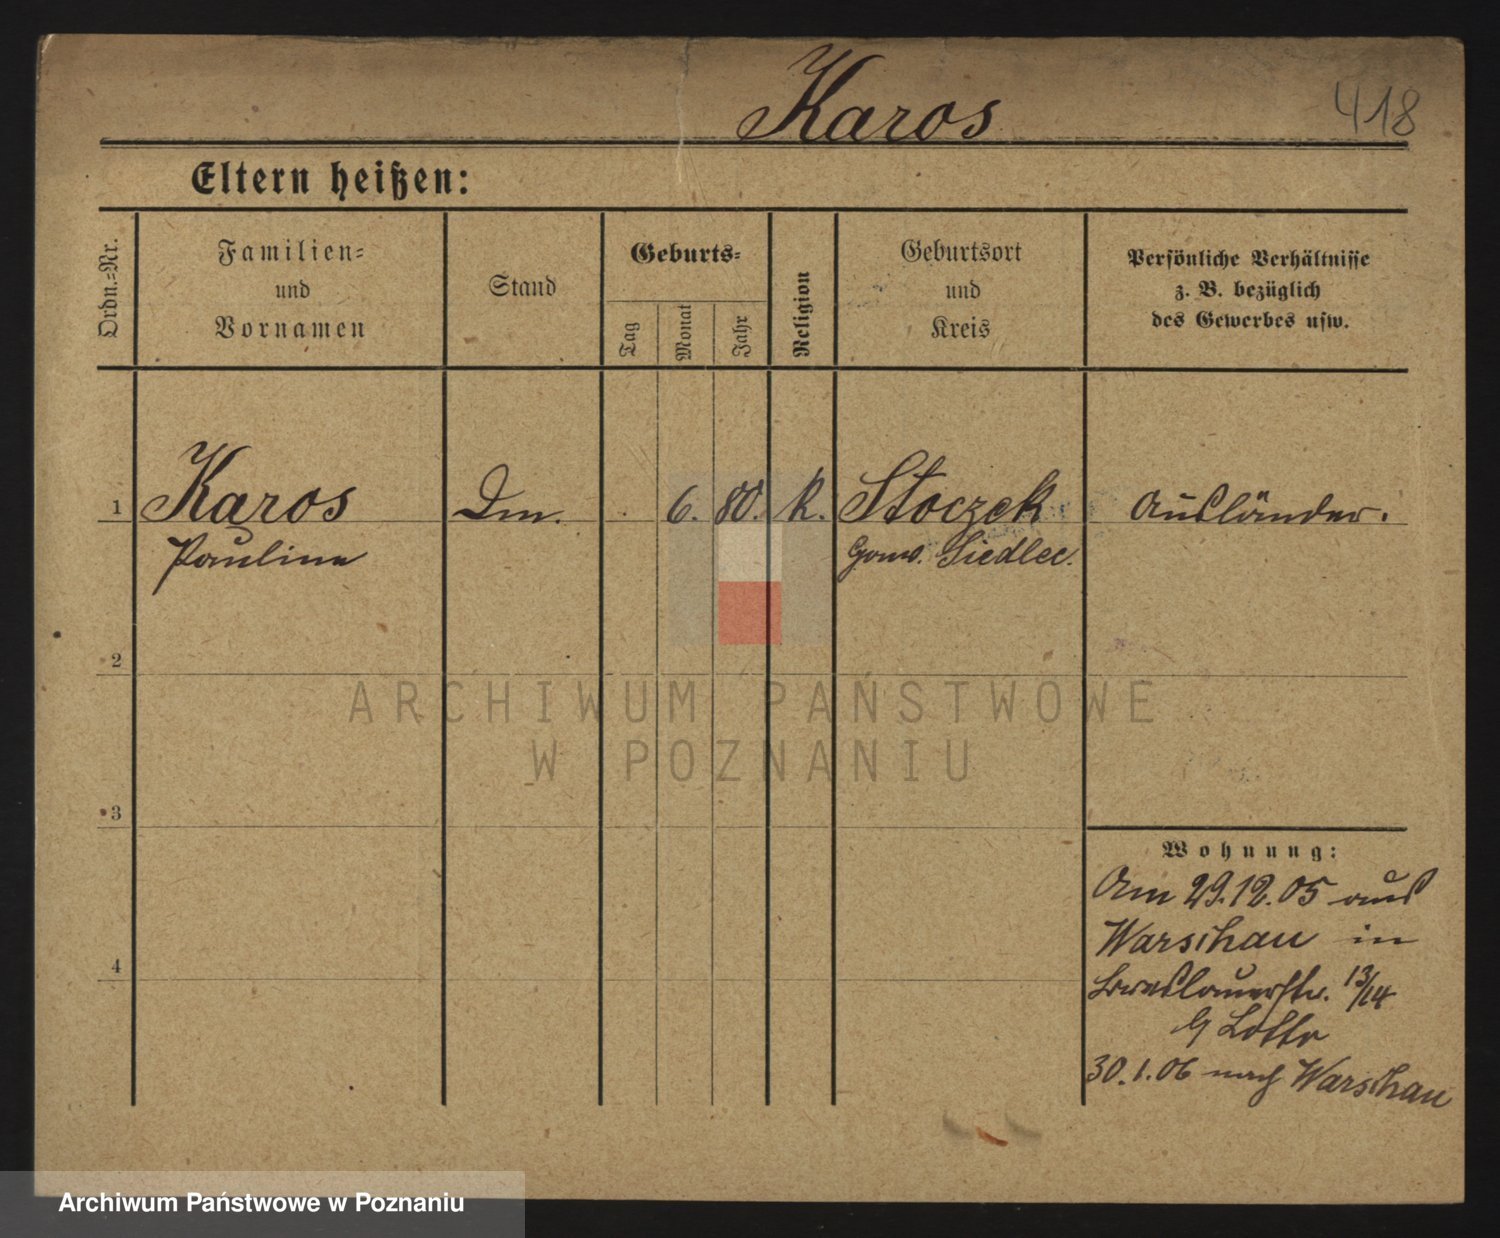 Karos
418
Eltern heißen:
Ordn.-Nr.
Familien-
und
Vornamen
Stand
Geburts-
Tag
Monat
Jahr
Religion
Geburtsort
und
Kreis
Persönliche Verhältnisse
z. B. bezüglich
des Gewerbes usw.
1 Karos Dm. 6. 80. k. Stoczek Ausländer.
Pauline Gouv. Siedlec.
2
ARCHIWUM PAŃSTWOWE
W POZNANIU
3
Wohnung:
Am 29.12.05 aus
Warschau in
4
Breslauerstr. 13/14
30.1.06 nach Warschau
Archiwum Państwowe w Poznaniu